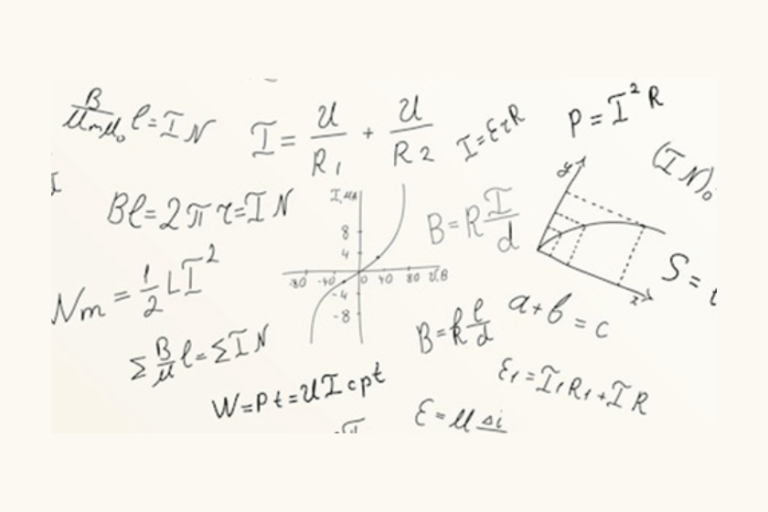 B/μmμ₀ l = IN
I = U/R₁ + U/R₂
I = ΣτR
P = I²R
(IN)₀
Bl = 2πτ = IN
I,μA
8
4
-80 -40 0 40 80 U,B
-4
-8
B = R I/d
y
x
S =
Nm = 1/2 LI²
Σ B/μ l = ΣIN
B = k l/d
a + b = c
W = Pt = UIcpt
ε₁ = I₁R₁ + IR
ε = μ Δi